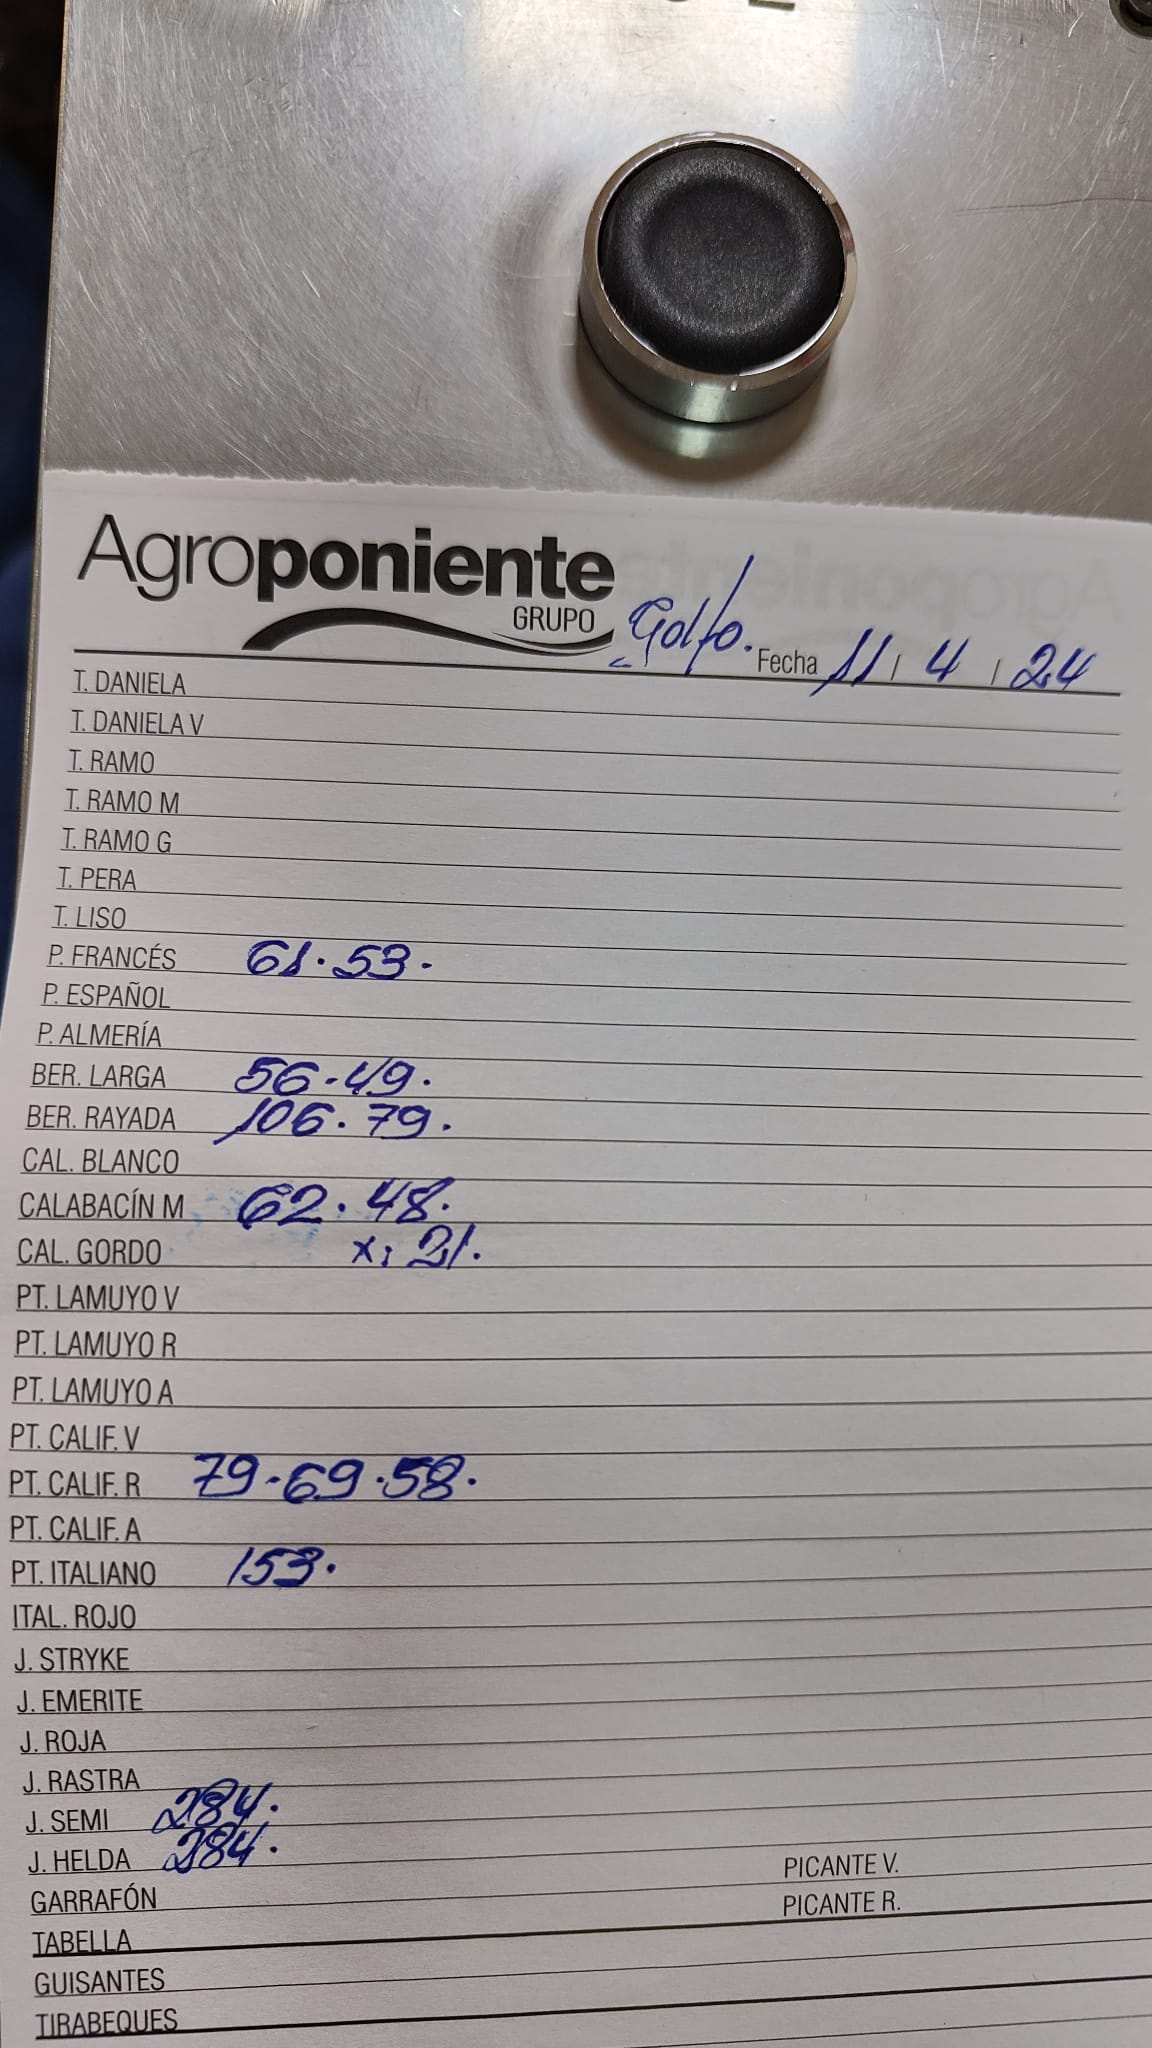 Agroponiente
GRUPO
Golfo. Fecha 11 / 4 / 24
T. DANIELA
T. DANIELA V
T. RAMO
T. RAMO M
T. RAMO G
T. PERA
T. LISO
P. FRANCÉS 61. 53.
P. ESPAÑOL
P. ALMERÍA
BER. LARGA 56. 49.
BER. RAYADA 106. 79.
CAL. BLANCO
CALABACÍN M 62. 48.
CAL. GORDO x: 21.
PT. LAMUYO V
PT. LAMUYO R
PT. LAMUYO A
PT. CALIF. V
PT. CALIF. R 79. 69. 58.
PT. CALIF. A
PT. ITALIANO 153.
ITAL. ROJO
J. STRYKE
J. EMERITE
J. ROJA
J. RASTRA
J. SEMI 284.
J. HELDA 284.
GARRAFÓN PICANTE V.
TABELLA PICANTE R.
GUISANTES
TIRABEQUES